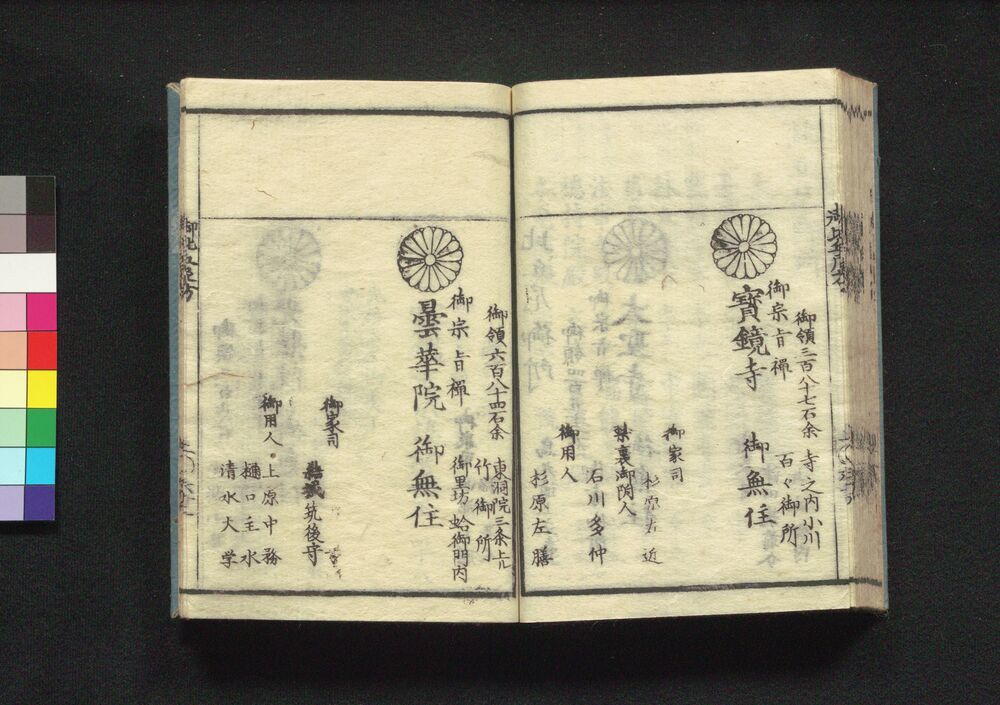 御領三百八十七石余
寺之内小川
御宗旨禅
百々御所
寳鏡寺
御無住
御家司
杉原右近
石川多仲
御用人
杉原左膳
御領六百八十四石余
東洞院三条上ル
竹御所
御宗旨禅
御里坊
蛤御門内
曇華院
御無住
御家司
筑後守
御用人
上原中務
樋口主水
清水大学